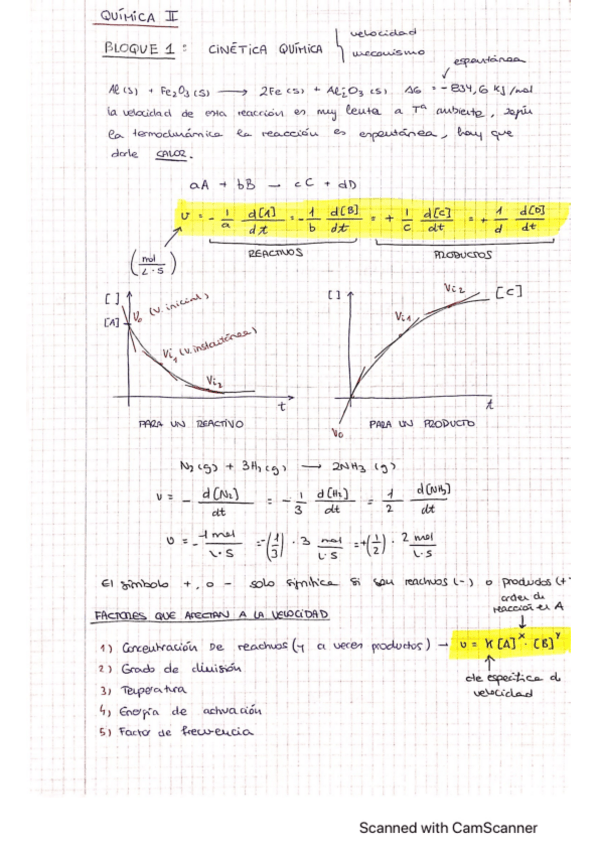 QUÍMICA II
BLOQUE 1: CINÉTICA QUÍMICA { velocidad
mecanismo
espontánea
Al(s) + Fe2O3(s) → 2Fe(s) + Al2O3(s) ΔG = -834,6 KJ/mol
la velocidad de esta reacción es muy lenta a Tª ambiente, según
la termodinámica la reacción es espontánea, hay que
darle CALOR.
aA + bB → cC + dD
v = - 1/a d[A]/dt = - 1/b d[B]/dt = + 1/c d[C]/dt = + 1/d d[D]/dt
REACTIVOS PRODUCTOS
(mol/L·S)
[ ] V0 (v. inicial) [A] Vi1 (v. instantánea) Vi2 t
[ ] Vi1 Vi2 [C] t V0
PARA UN REACTIVO PARA UN PRODUCTO
N2(g) + 3H2(g) → 2NH3(g)
v = - d[N2]/dt = - 1/3 d[H2]/dt = 1/2 d[NH3]/dt
v = - -1 mol/L·S = -(1/3) · 3 mol/L·S = +(1/2) · 2 mol/L·S
El símbolo +, o - solo significa si son reactivos (-) o productos (+
orden de
reacción en A
FACTORES QUE AFECTAN A LA VELOCIDAD
1) Concentración De reactivos (y a veces productos) → v = K[A]^x · [B]^y
2) Grado de división
cte específica d
velocidad
3) Temperatura
4) Energía de activación
5) Factor de frecuencia
Scanned with CamScanner